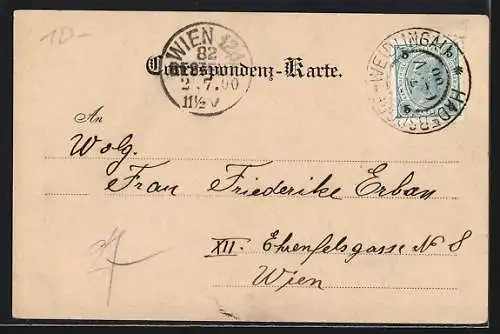 10-
WIEN
82
2.7.00
11½V
Correspondenz-Karte.
WEIDLINGAU
HADERSDORF
An
Wolg.
Frau Friederike Erban
XII. Ehrenfelsgasse N 8
Wien